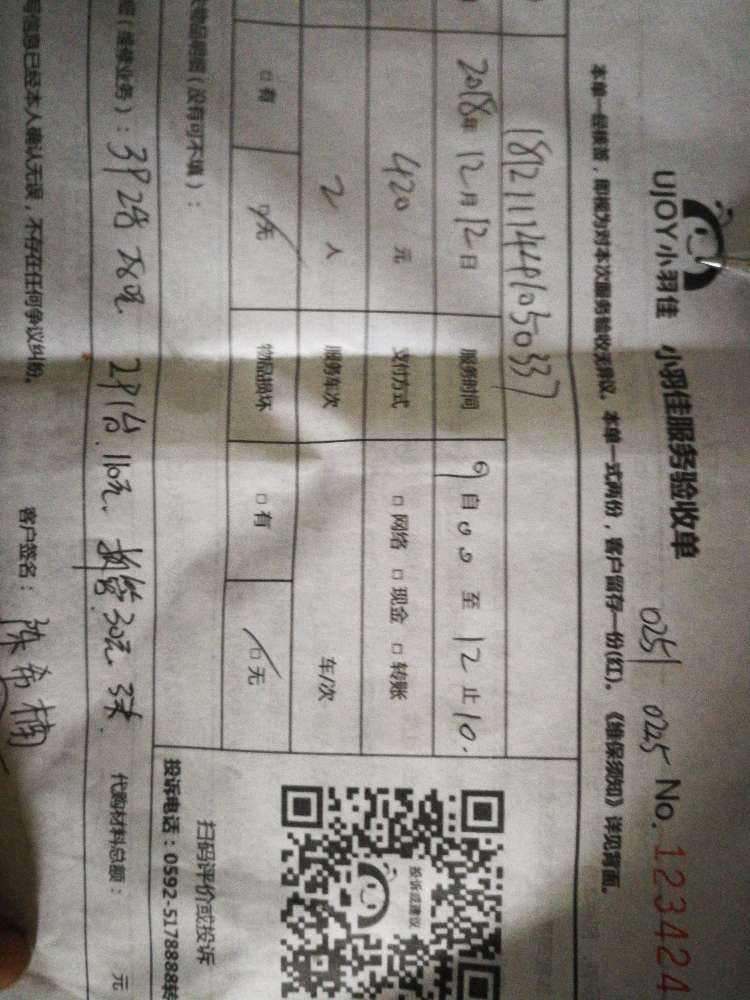 UJOY小羽佳 小羽佳服务验收单 0251 0225 No. 123424
本单一经接签,即视为对本次服务验收无异议。本单一式两份,客户留存一份(红)。《维保须知》详见背面。
18121114491050337
2018年12月12日 服务时间 9自00至12止10.
420元 支付方式 □网络 □现金 □转账
2人 服务车次 车/次
□有 □无 物品损坏 □有 □无
物品超图(没有可不填):
扫码评价或投诉
投诉或建议
投诉电话:0592-5178888转
(维修业务):3P2台 580元 2P1台 110元、 30元 3米
代购材料总额: 元
写信息已经本人确认无误,不存在任何争议纠纷。 客户签名:陈希楠